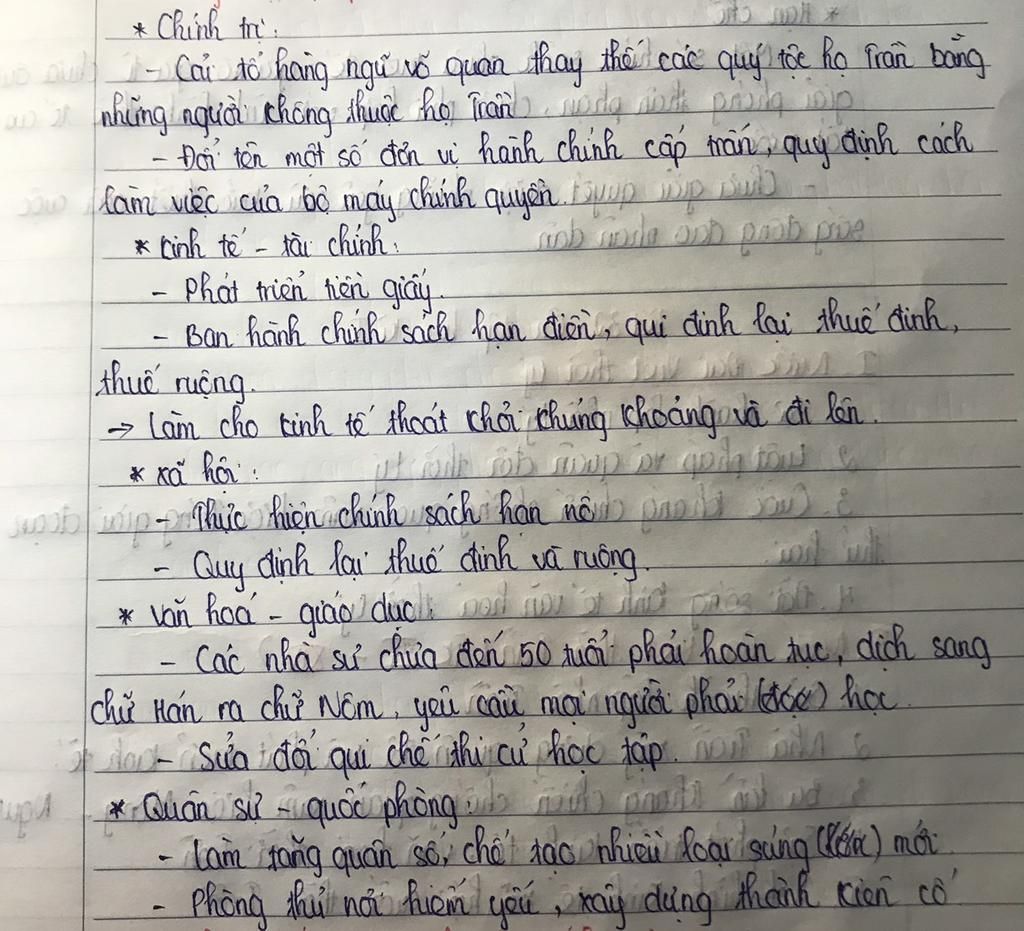 * Chính trị:
- Cải tổ hàng ngũ võ quan thay thế các quý tộc họ Trần bằng
những người không thuộc họ Trần
- Đổi tên một số đơn vị hành chính cấp trấn, quy định cách
làm việc của bộ máy chính quyền.
* Kinh tế - tài chính:
- Phát triển tiền giấy.
- Ban hành chính sách hạn điền, qui định lại thuế đinh,
thuế ruộng.
→ Làm cho kinh tế thoát khỏi khủng khoảng và đi lên.
* Xã hội:
- Thực hiện chính sách hạn nô
- Quy định lại thuế đinh và ruộng.
* Văn hoá - giáo dục:
- Các nhà sư chưa đến 50 tuổi phải hoàn tục, dịch sang
chữ Hán ra chữ Nôm, yêu cầu mọi người phải (đọc) học
- Sửa đổi qui chế thi cử học tập.
* Quân sự - quốc phòng:
- Làm tăng quân số, chế tạo nhiều loại súng mới
- Phòng thủ nơi hiểm yếu, xây dựng thành kiên cố